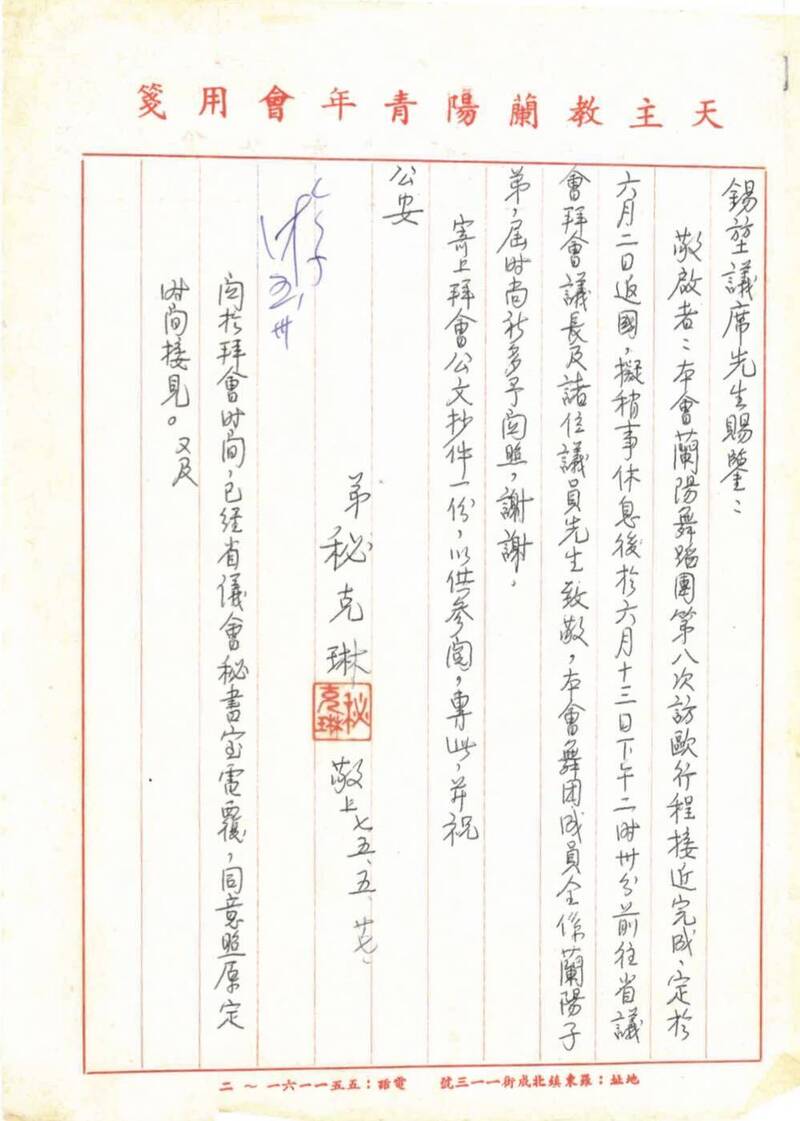 天主教蘭陽青年會用箋
錫堃議席先生賜鑒：
敬啟者：本會蘭陽舞蹈團第八次訪歐行程接近完成，定於
六月二日返國，擬稍事休息後於六月十三日下午二时卅分前往省議
會拜會議長及諸位議員先生致敬，本會舞团成員全係蘭陽子
弟，屆时尚祈多予関照，謝謝，
寄上拜會公文抄件一份，以供參閱，專此，并祝
公安
弟秘克琳
秘克琳
敬上七五、五、廿七、
関於拜會时间，已经省儀會秘書室電覆，同意照原定
时间接見。又及
地址：羅東鎮北成街一一三號 電話：五五一一六一～二